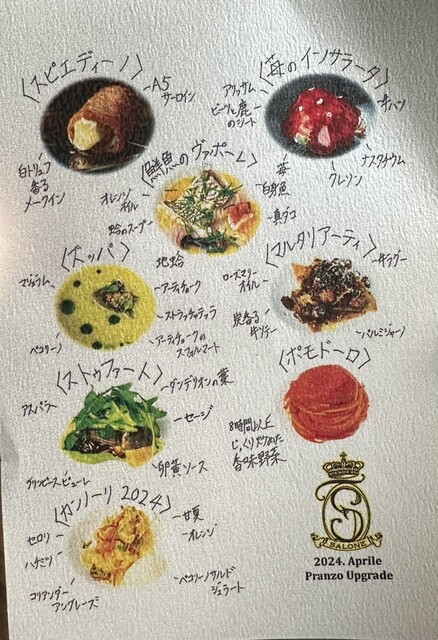 〈スピエディーノ〉
A5
サーロイン
白トリュフ
香る
メークイン
〈苺のインサラータ〉
アリッサム
ビーツと鹿
のシート
キハン
ナスタチウム
クレソン
〈鮮魚のヴァポーレ〉
オレンジ
オイル
蛤のスープ
地蛤
苺
白身魚
真ダコ
〈ズッパ〉
マジョラム
アーティチョーク
ストラッチャテッラ
アーティチョークの
スフォルマート
ペコリーノ
〈マルタリアーティ〉
ローズマリー
オイル
牛ラグー
炭香る
パルミジャーノ
〈ストゥファート〉
ダンデリオンの葉
アスパラ
セージ
卵黄ソース
グリンピースピューレ
〈ポモドーロ〉
8時間以上
じっくり炒めた
香味野菜
〈カノーリ 2024〉
セロリ
ハチミツ
甘夏
オレンジ
コリアンダー
アングレーズ
ペコリーノサルド
ジェラート
S
SALONE
2024. Aprile
Pranzo Upgrade